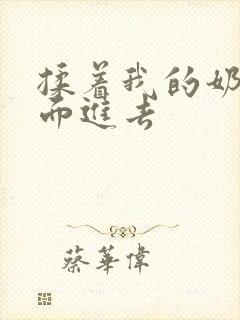 揉着我的奶
而進去
蔡華偉